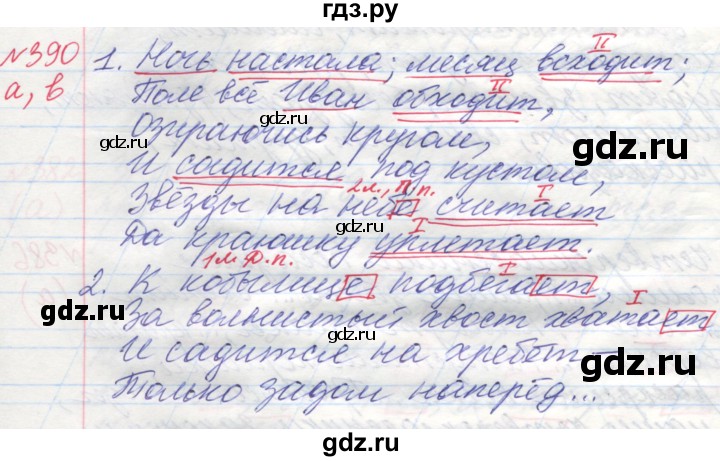 гдз.ру
№390
а, в
1. Ночь настала; месяц всходит;
II
Поле всё Иван обходит,
II
Озираючись кругом,
И садится под кустом,
2л., П.п.
I
Звёзды на небе считает
Да краюшку уплетает.
I
1л. Д.п.
I
2. К кобылице подбегает,
За волнистый хвост хватает
I
И садится на хребет –
Только задом наперёд...
gdz.ru
gdz.ru
gdz.ru
gdz.ru
gdz.ru
gdz.ru
gdz.ru